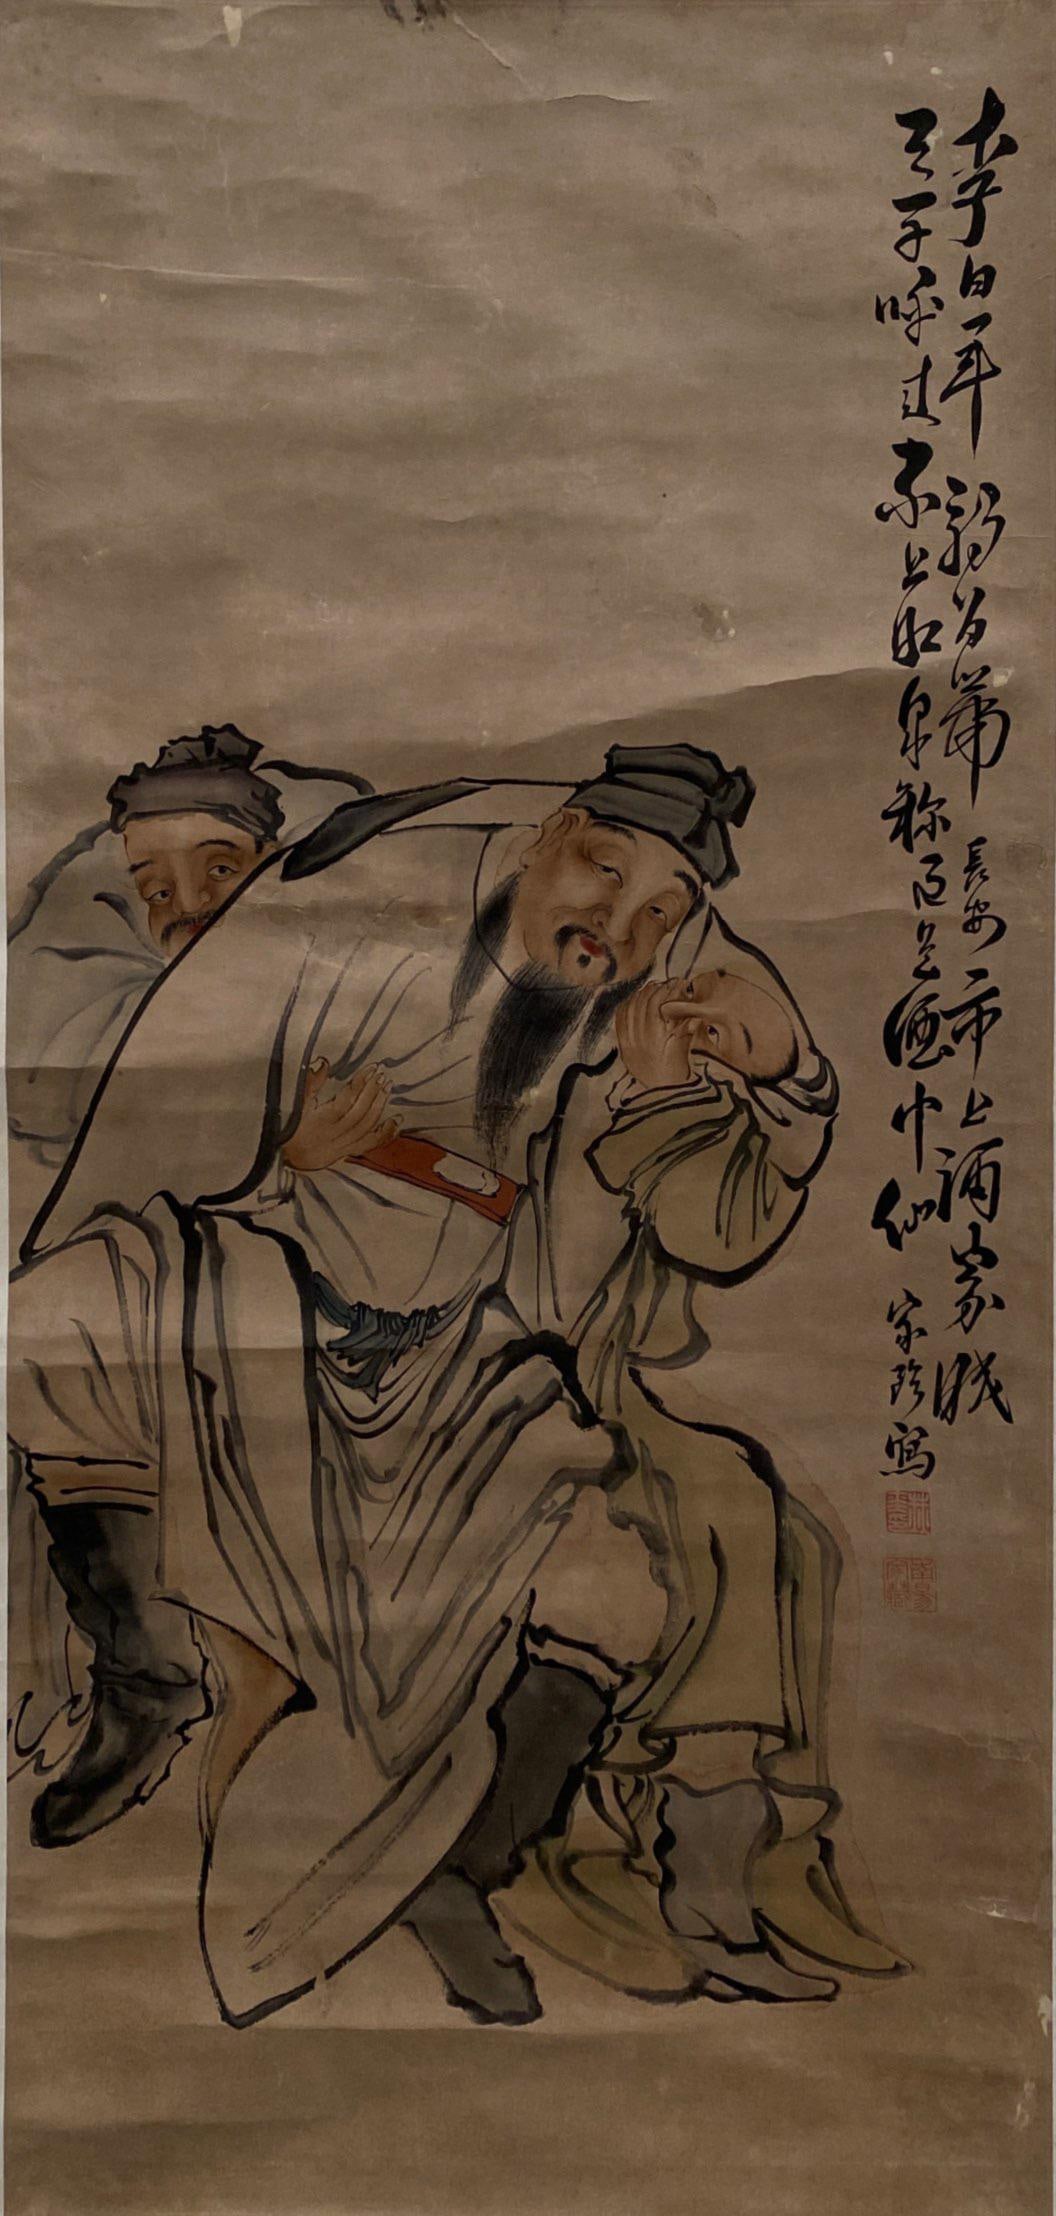 李白一斗詩百篇長安市上酒家眠
天子呼來不上船自稱臣是酒中仙
家珍寫